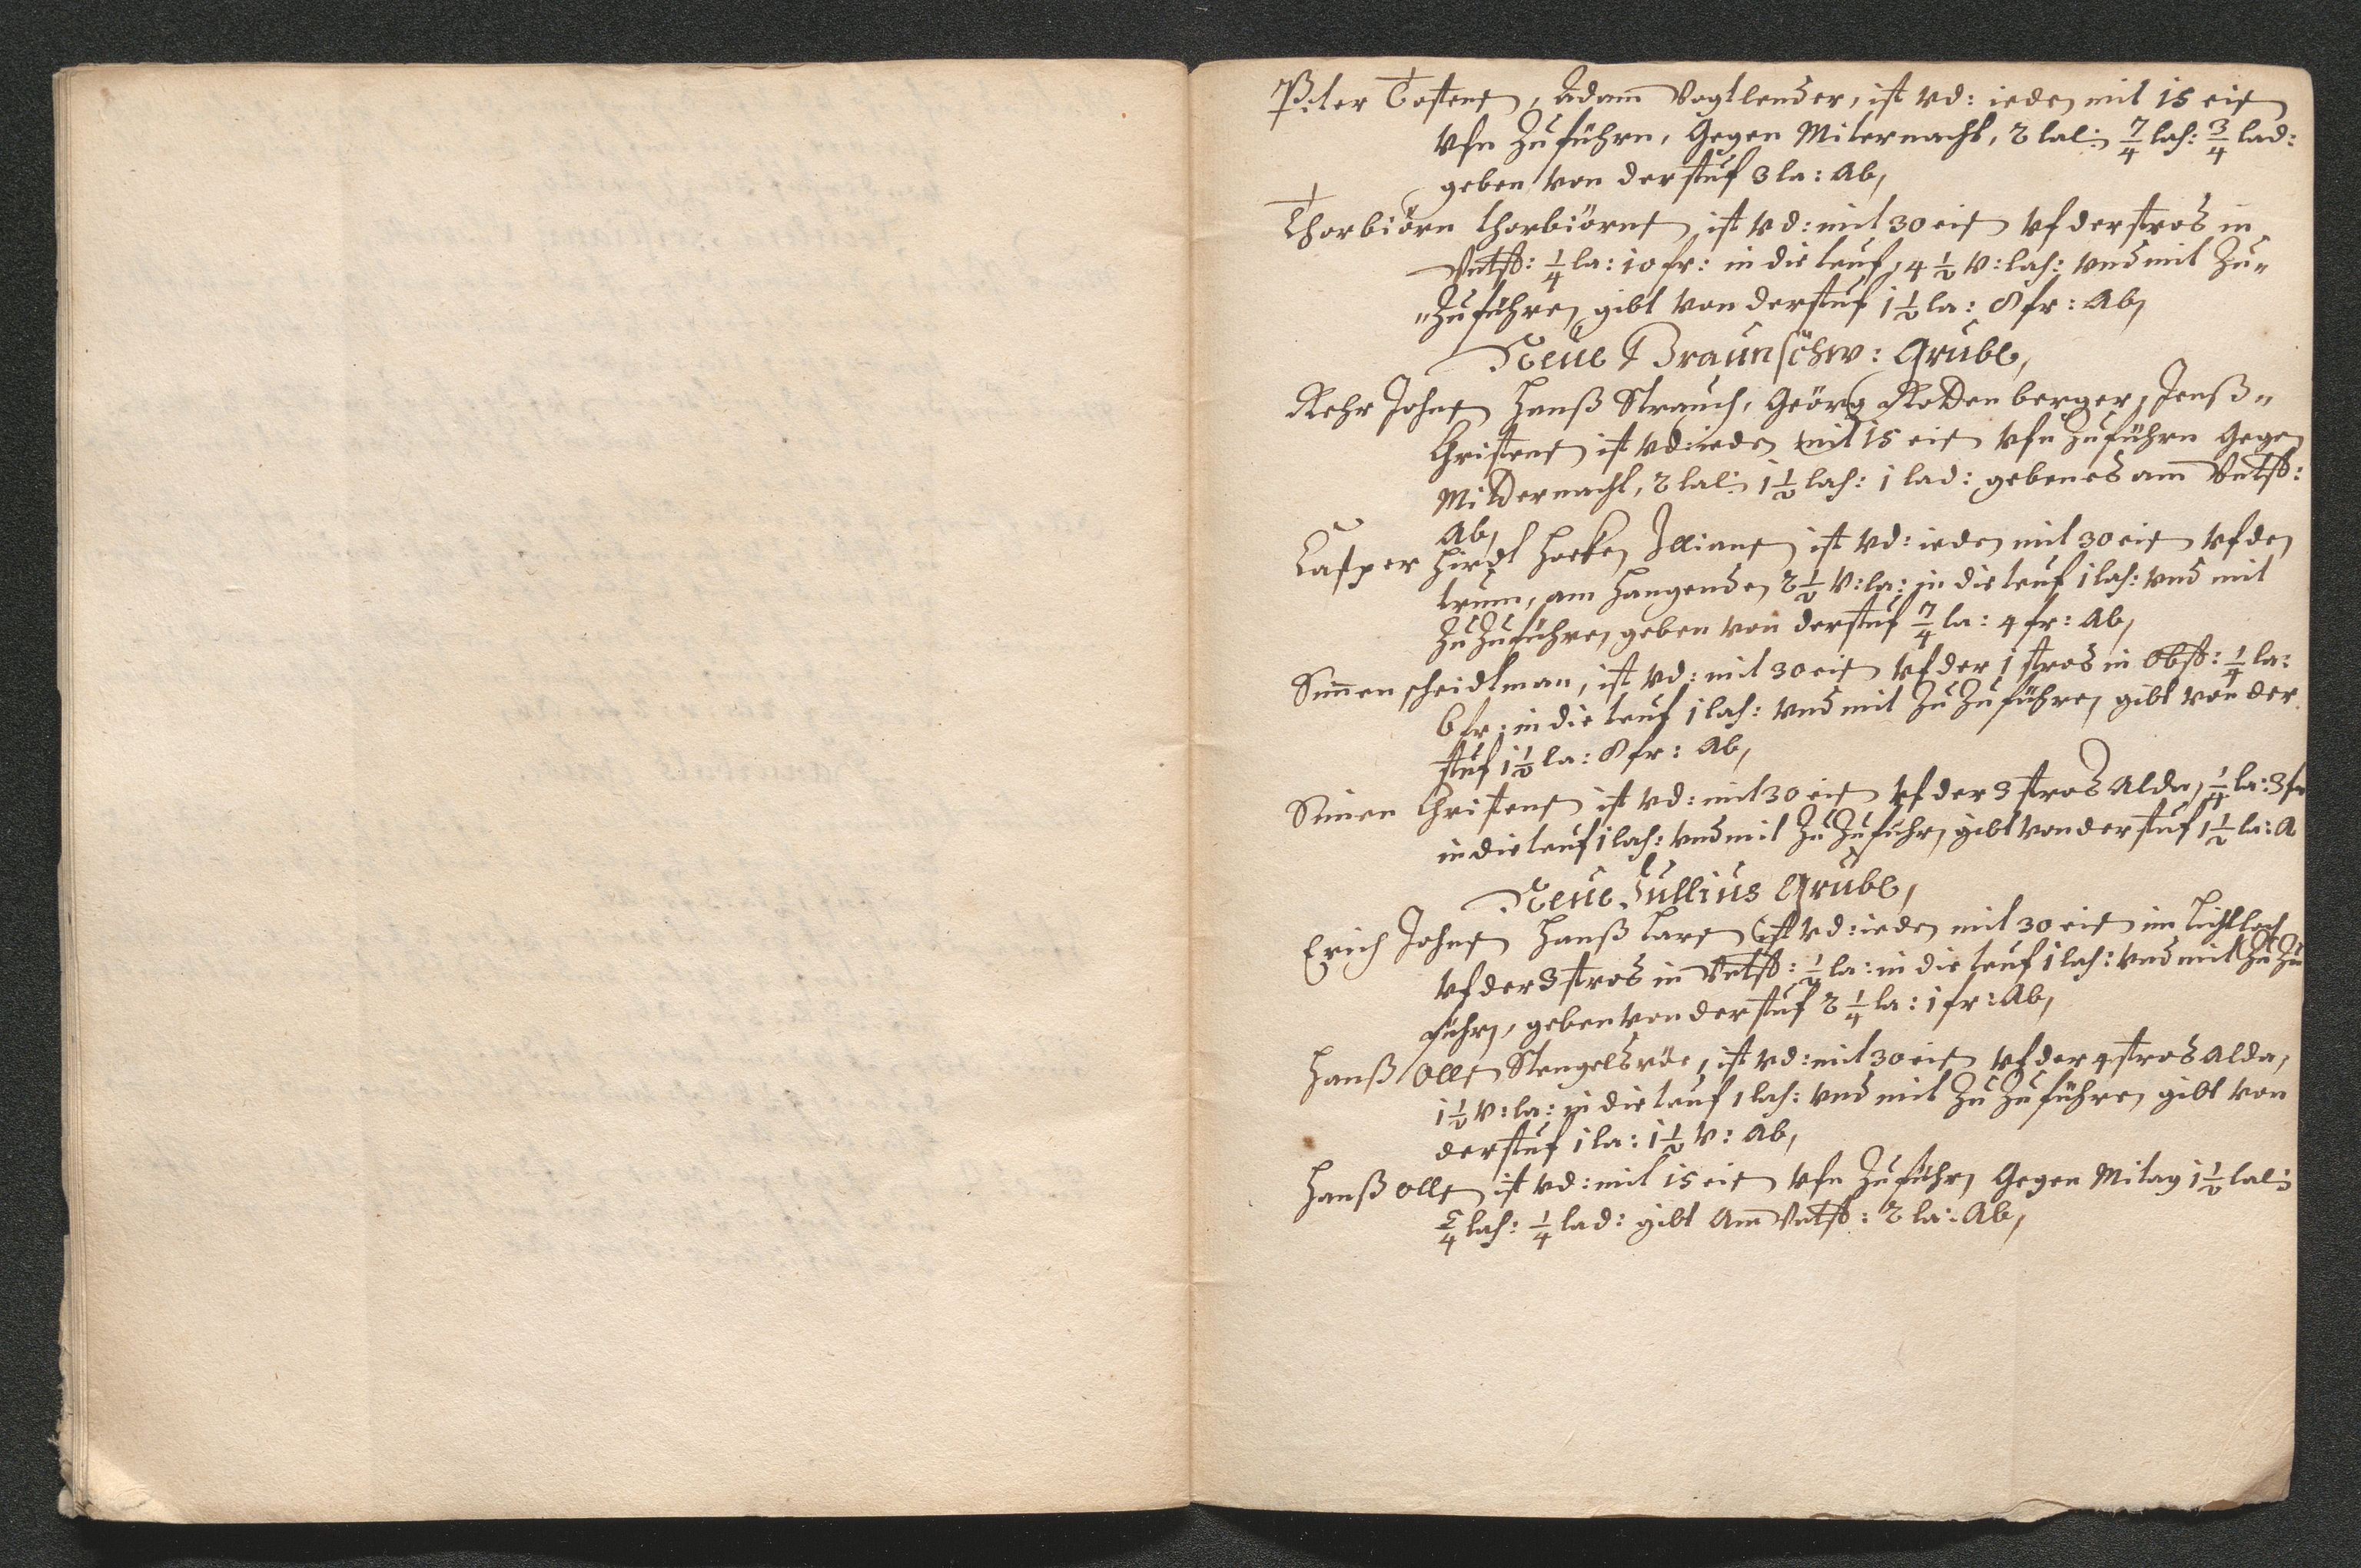 Peter Tostens, Adam Vogtlender, ist vd: ieden mit 15 eis
vfn Zuführn, Gegen Miternacht, 2 lal: 7/4 lah: 3/4 lad:
geben von der stuf 3 la: Ab,
Thorbiörn Thorbiörns ist vd: mit 30 eis vf der stros in
Untst: 1/4 la: 10 fr: in die teuf, 4 1/2 v: lah: vnd mit Zu„
„Zuführen gibt von der stuf 1 1/2 la: 8 fr: Ab,
Neue Braunschw: Grube,
Rehr Johns Hanß Strauch, Geörg Rottenberger, Jenß„
Christens ist vd: ieden mit 15 eis vfn Zuführn Gegen
Mitternacht, 2 lal: 1 1/2 lah: 1 lad: geben es am Untst:
Ab,
Casper Hirdt Hoeken Illians ist vd: ieden mit 30 eis vf den
trum, am Hangenden 2 1/2 v: la: in die teuf 1 lah: vnd mit
Zu Zuführen, geben von der stuf 7/4 la: 4 fr: Ab,
Simen scheidtman, ist vd: mit 30 eis vf der 1 stros in Obst: 1/4 la:
6 fr: in die teuf 1 lah: vnd mit Zu Zuführen, gibt von der
stuf 1 1/2 la: 8 fr: Ab,
Simen Christens ist vd: mit 30 eis vf der 3 stros Alda, 1/4 la: 3 fr
in die teuf 1 lah: vnd mit Zu Zuführn, gibt von der stuf 1 1/2 la: A
Neue Jullius Grube,
Erich Johns Hanß Lars ist vd: ieden mit 30 eis im Lichtloch
vf der 3 stros in Untst: 1/2 la: in die teuf 1 lah: vnd mit Zu Zu
führn, geben von der stuf 2 1/4 la: 1 fr: Ab,
Hanß Olls Stengelsröe, ist vd: mit 30 eis vf der 4 stros Alda,
1 1/2 v: la: in die teuf 1 lah: vnd mit Zu Zuführen gibt von
der stuf 1 la: 1 1/2 v: Ab,
Hanß Olls ist vd: mit 15 eis vfn Zuführn Gegen Mitag 1 1/2 lal:
5/4 lah: 1/4 lad: gibt Am Untst: 2 la: Ab,